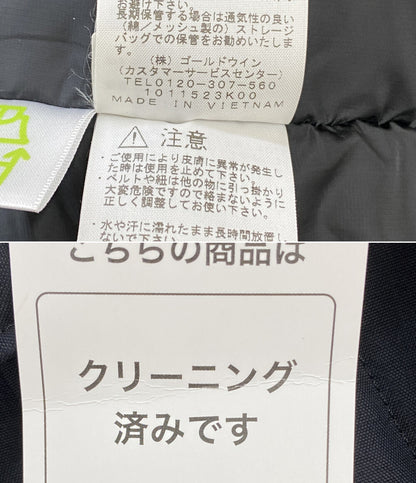 は避けてください。
長期保管する場合は通気性の良い
(綿/メッシュ製の)ストレージ
バッグでの保管をお勧めいたします。
(株)ゴールドウイン
(カスタマーサービスセンター)
TEL0120-307-560
1011523K00
MADE IN VIETNAM
注意
・ご使用により皮膚に異常が発生し
た時は使用を止めて下さい。
・ベルトや紐は他の物に引っ掛かり
大変危険ですので絡まないように
正しく調整してお使い下さい。
・水や汗に濡れたまま長時間放置し
ないで下さい。
こちらの商品は
クリーニング
済みです